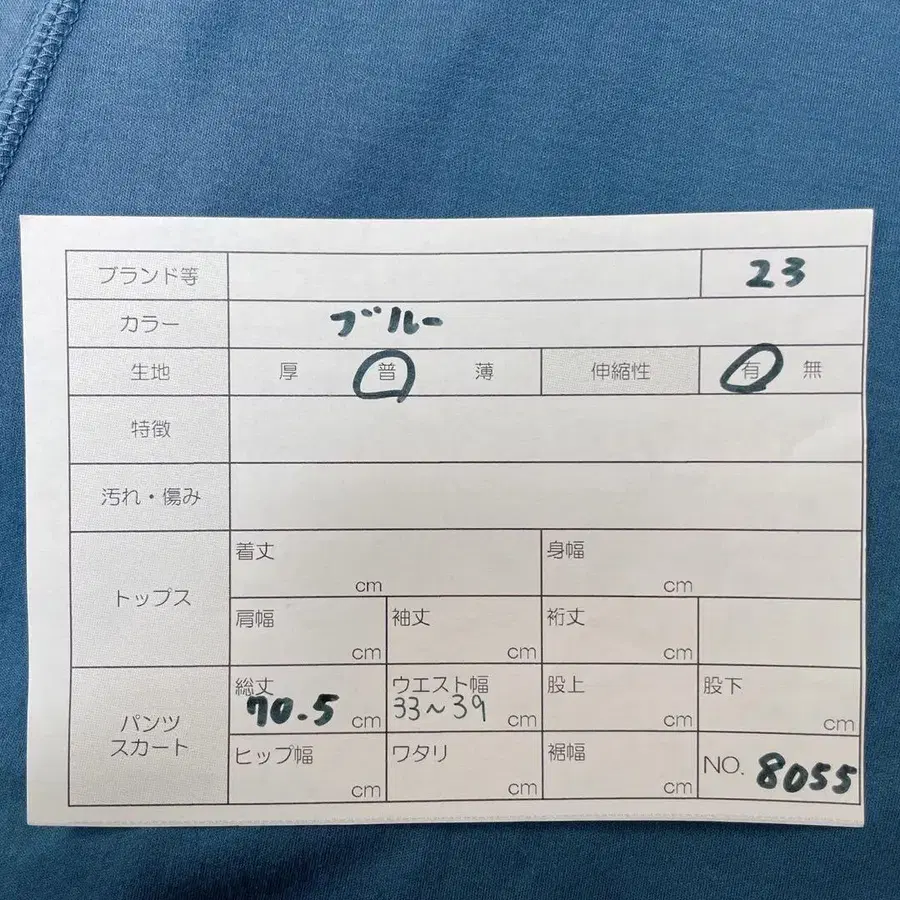 ブランド等 23
カラー ブルー
生地 厚 普 薄 伸縮性 有 無
特徴
汚れ・傷み
トップス
着丈 cm 身幅 cm
肩幅 cm 袖丈 cm 裄丈 cm
パンツ
スカート
総丈 70.5 cm ウエスト幅 33~39 cm 股上 cm 股下 cm
ヒップ幅 cm ワタリ cm 裾幅 cm NO. 8055